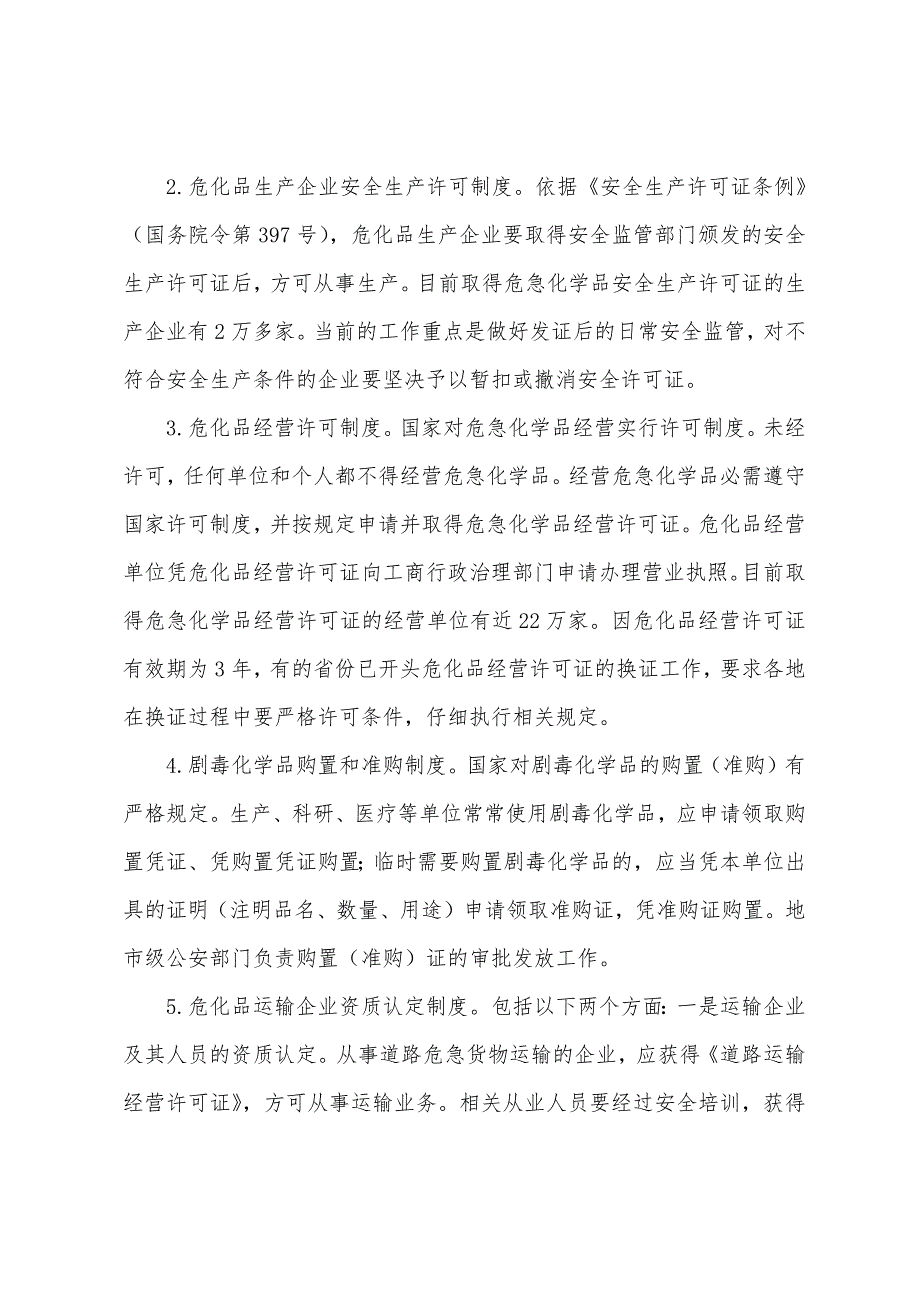 2.危化品生产企业安全生产许可制度。依据《安全生产许可证条例》
（国务院令第 397 号），危化品生产企业要取得安全监管部门颁发的安全
生产许可证后，方可从事生产。目前取得危急化学品安全生产许可证的生
产企业有 2 万多家。当前的工作重点是做好发证后的日常安全监管，对不
符合安全生产条件的企业要坚决予以暂扣或撤消安全许可证。
3.危化品经营许可制度。国家对危急化学品经营实行许可制度。未经
许可，任何单位和个人都不得经营危急化学品。经营危急化学品必需遵守
国家许可制度，并按规定申请并取得危急化学品经营许可证。危化品经营
单位凭危化品经营许可证向工商行政治理部门申请办理营业执照。目前取
得危急化学品经营许可证的经营单位有近 22 万家。因危化品经营许可证
有效期为 3 年，有的省份已开头危化品经营许可证的换证工作，要求各地
在换证过程中要严格许可条件，仔细执行相关规定。
4.剧毒化学品购置和准购制度。国家对剧毒化学品的购置（准购）有
严格规定。生产、科研、医疗等单位常常使用剧毒化学品，应申请领取购
置凭证、凭购置凭证购置；临时需要购置剧毒化学品的，应当凭本单位出
具的证明（注明品名、数量、用途）申请领取准购证，凭准购证购置。地
市级公安部门负责购置（准购）证的审批发放工作。
5.危化品运输企业资质认定制度。包括以下两个方面：一是运输企业
及其人员的资质认定。从事道路危急货物运输的企业，应获得《道路运输
经营许可证》，方可从事运输业务。相关从业人员要经过安全培训，获得